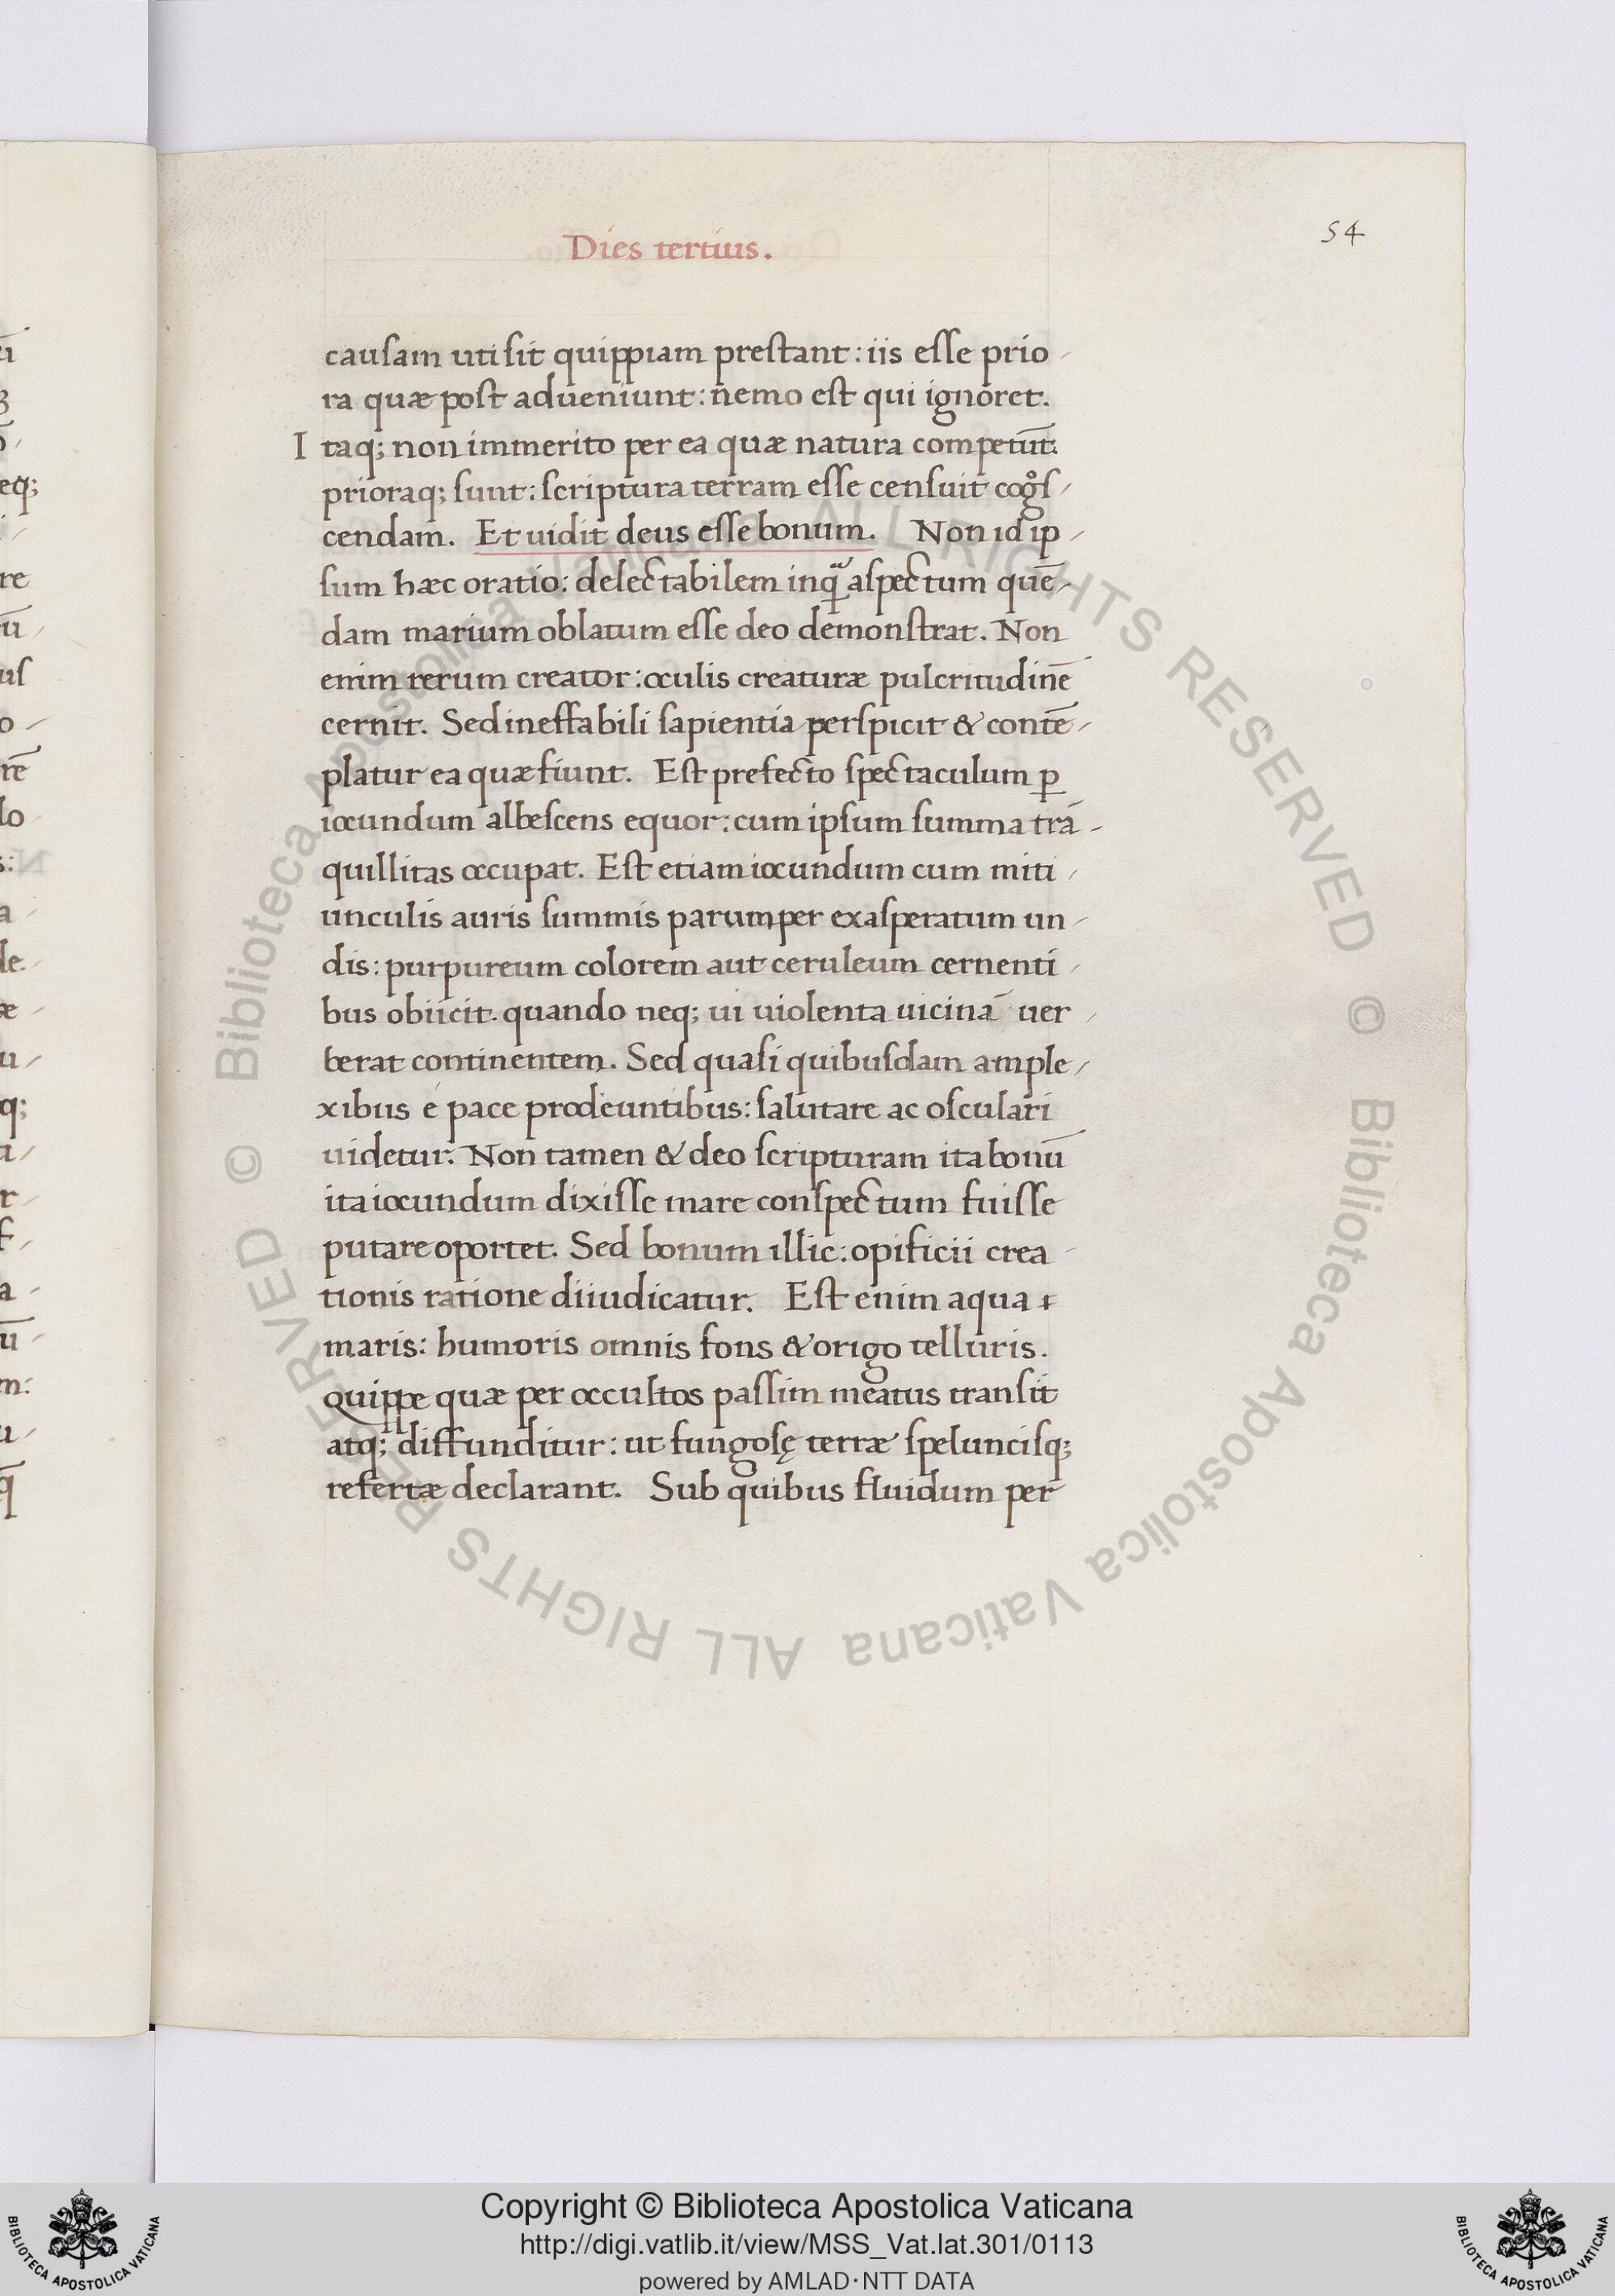 54
Dies tertius.
causam uti sit quippiam prestant: iis esse prio-
ra quæ post adueniunt: nemo est qui ignoret.
Itaq; non immerito per ea quæ natura competūt:
prioraq; sunt: scriptura terram esse censuit cogͦs-
cendam. Et uidit deus esse bonum. Non id ip-
sum hæc oratio: delectabilem inqͣ̈ aspectum quē-
dam marium oblatum esse deo demonstrat. Non
enim rerum creator: oculis creaturæ pulcritudinē
cernit. Sed ineffabili sapientia perspicit & contē-
platur ea quæ fiunt. Est prefecto spectaculum ꝑ
iocundum albescens equor: cum ipsum summa trā-
quillitas occupat. Est etiam iocundum cum miti-
unculis auris summis parumper exasperatum un-
dis: purpureum colorem aut ceruleum cernenti-
bus obiicit. quando neq; ui uiolenta uicinā uer-
berat continentem. Sed quasi quibusdam ample-
xibus e pace prodeuntibus: salutare ac osculari
uidetur. Non tamen & deo scripturam ita bonū
ita iocundum dixisse mare conspectum fuisse
putare oportet. Sed bonum illic: opificii crea-
tionis ratione diiudicatur. Est enim aqua
maris: humoris omnis fons & origo telluris.
Quippe quæ per occultos passim meatus transit
atq; diffunditur: ut fungosę terræ speluncisq;
refertæ declarant. Sub quibus fluidum per
© Biblioteca Apostolica Vaticana ALL RIGHTS RESERVED © Biblioteca Apostolica Vaticana ALL RIGHTS RESERVED
Copyright © Biblioteca Apostolica Vaticana
http://digi.vatlib.it/view/MSS_Vat.lat.301/0113
powered by AMLAD·NTT DATA
BIBLIOTECA APOSTOLICA VATICANA
BIBLIOTECA APOSTOLICA VATICANA